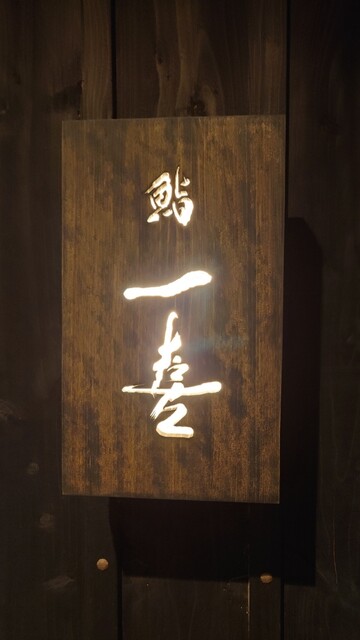 鮨
一喜